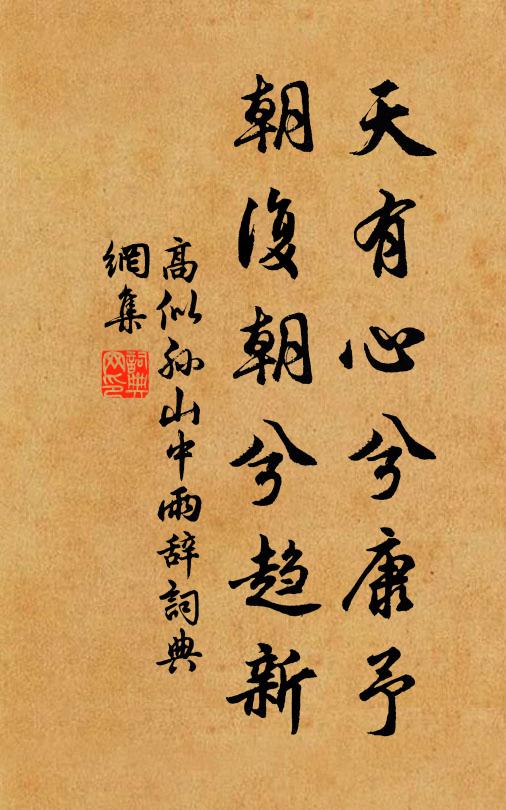 天有心兮康予
朝復朝兮趋新
高似孙山中雨辞詞典
網集
詞典
网印